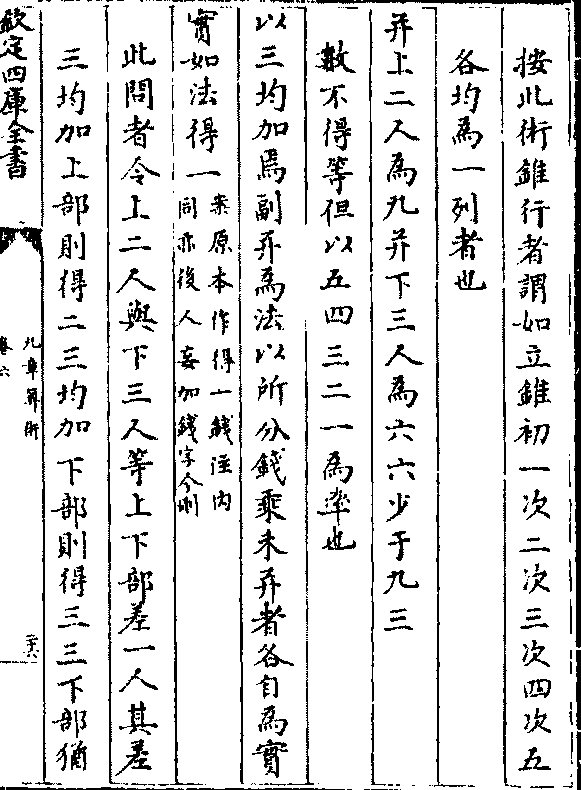 按此術錐行者謂如立錐初一次二次三次四次五
各均為一列者也
并上二人為九并下三人為六六少于九三
數不得等但以五四三二一為率也
以三均加焉副并為法以所分錢乘未并者各自為實
實如法得一案原本作得一錢注內
同亦後人妄加錢字今刪
此問者令上二人與下三人等上下部差一人其差
三均加上部則得二三均加下部則得三三下部猶
欽定四庫全書
九章算術
卷六
二十六